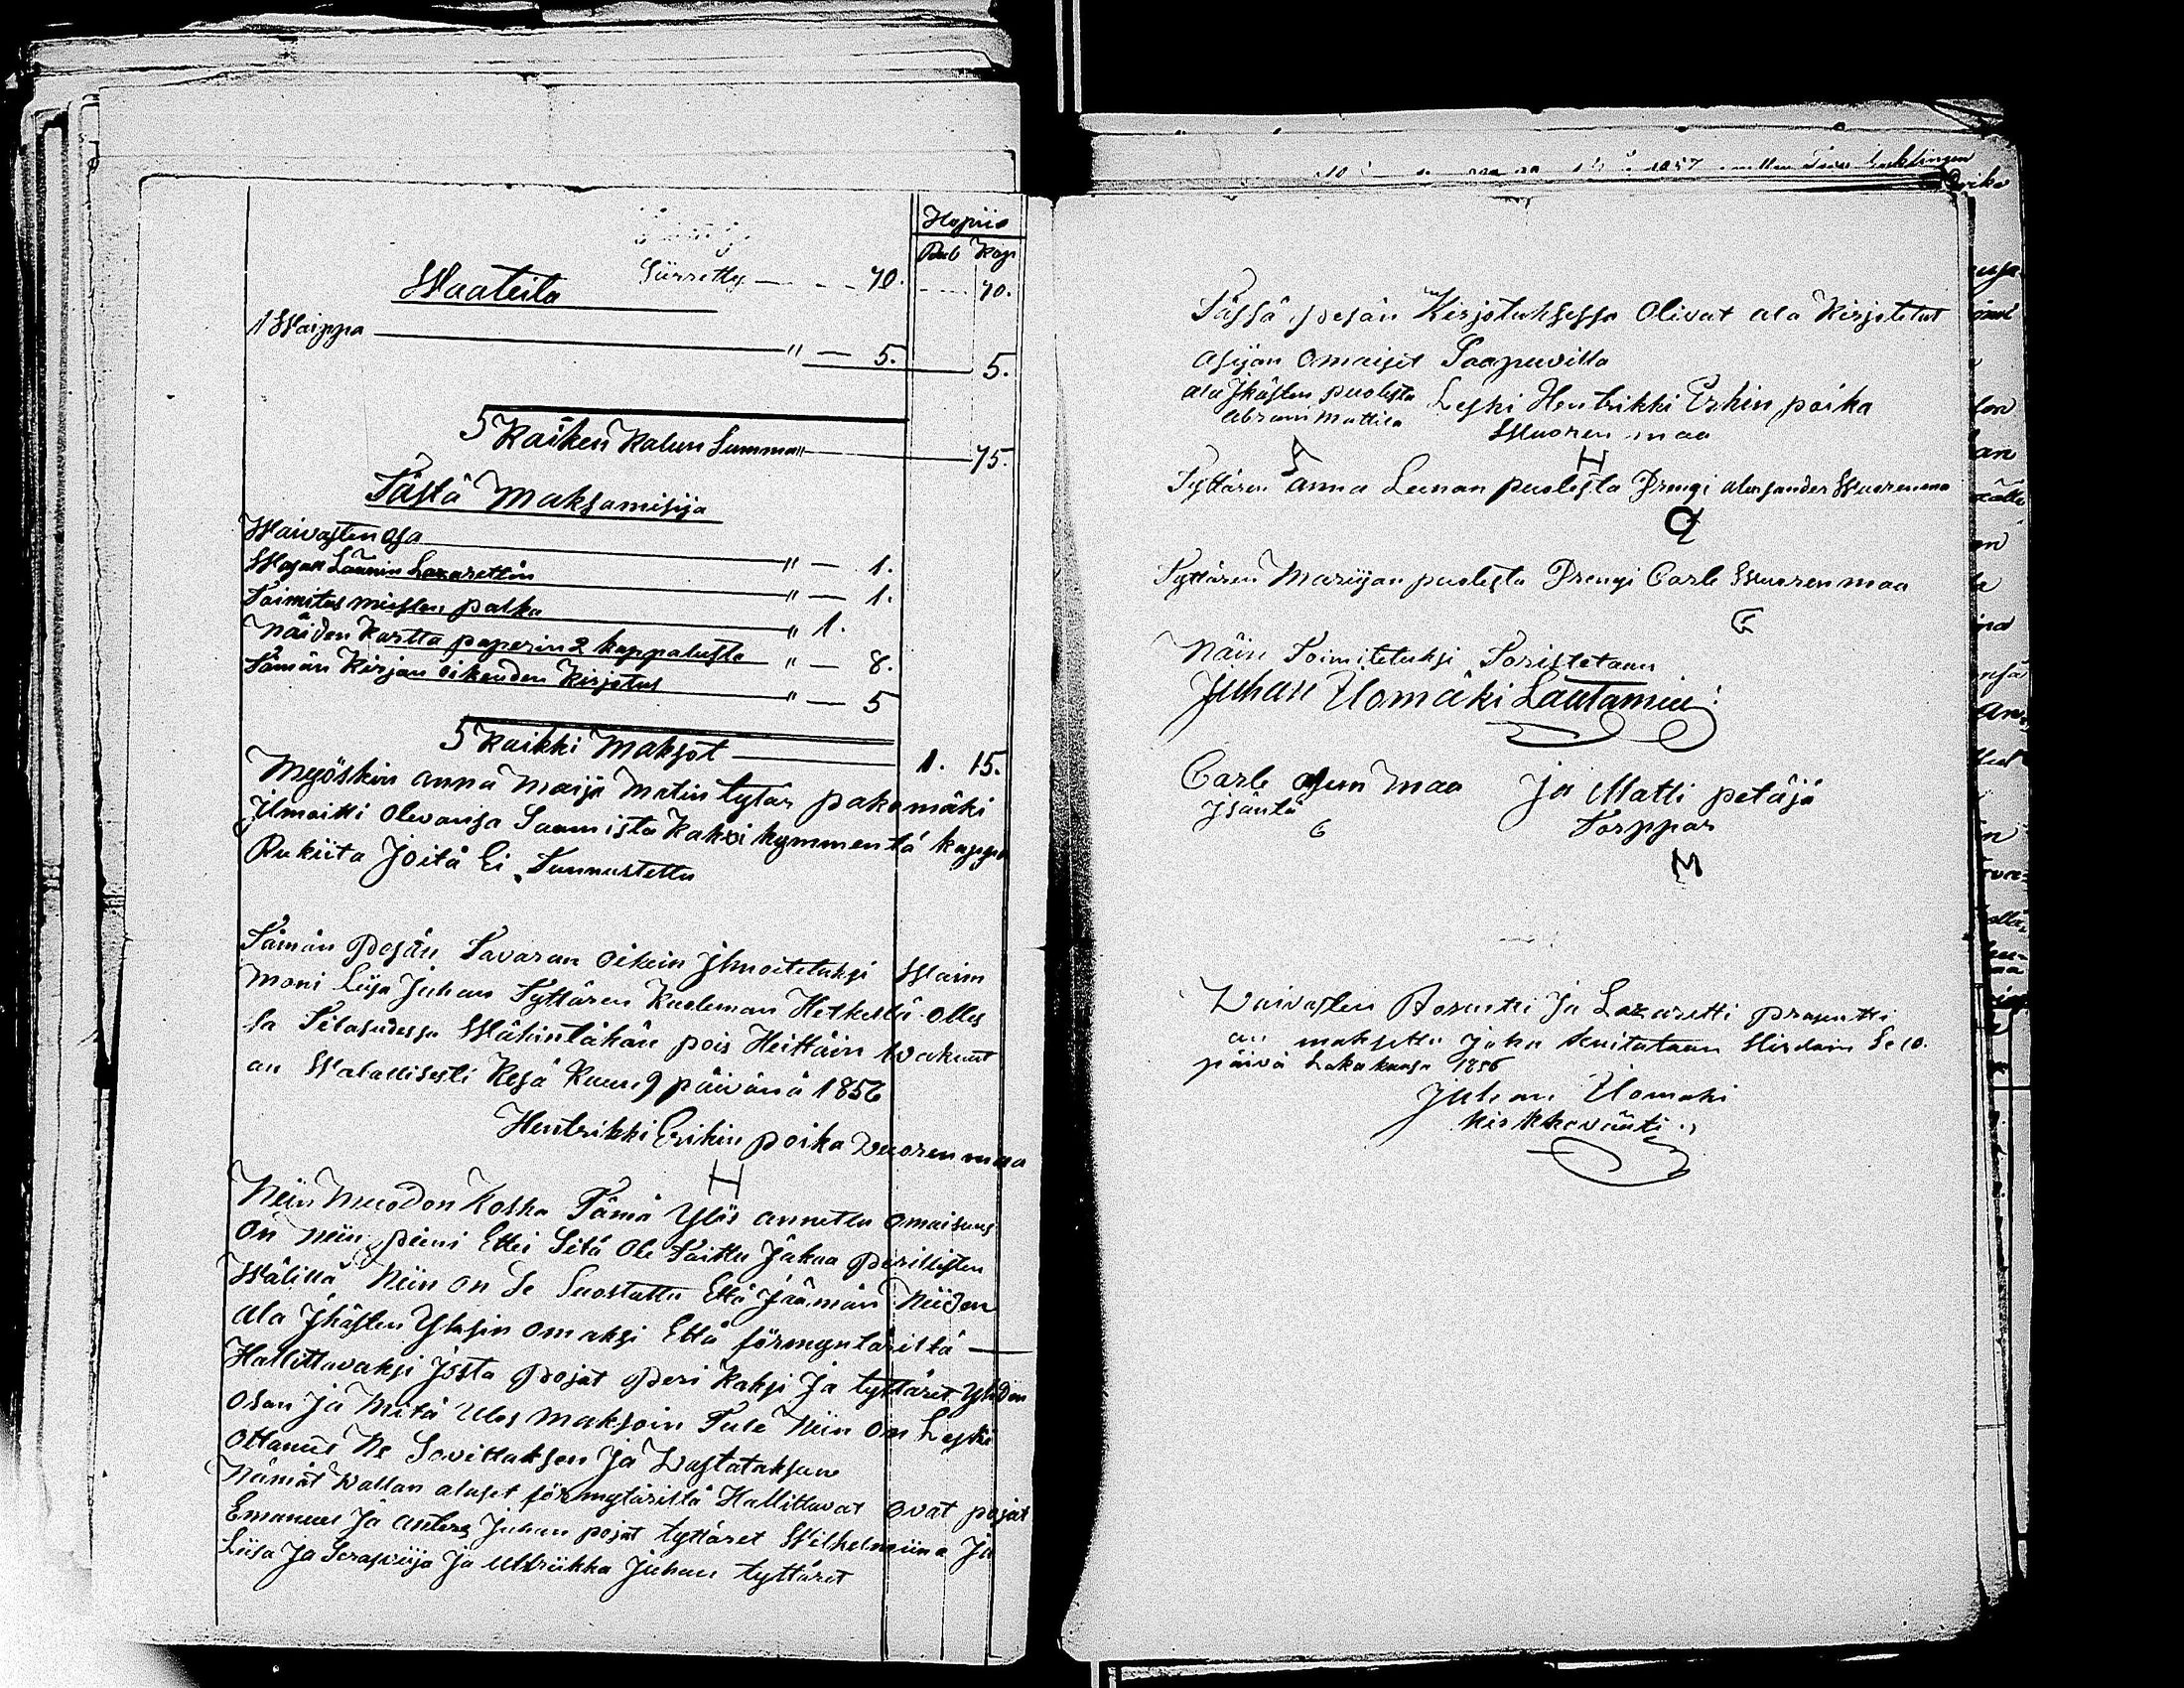 Hopiia
Rub Kop
Siirretty — 70. 70.
Waateita
1 Waippa — " — 5. 5.
S Kaiken Kalun Summa " — 75.
Tästä Maksamisija
Waivasten osa — " — 1.
Wasan Läänin Lazarettiin — " — 1.
Toimitus miesten palka — " 1.
Näiden Kartta paperin 2 kappalusta — " — 8.
Tämän Kirjan oikeuden Kirjotus — " — 5
S Kaikki Maksot — 1. 15.
Myöskin anna Maija Matin tytär pakamäki
Ilmoitti Olevansa Saamista Kaksi kymmentä kappa
Rukiita Joitä Ei Tunnustettu
Tämän Pesän Tavaran Oikein Ilmoitetuksi Waim
moni Liisa Juhan Tyttären Kuoleman Hetkestä olles
sa Tilasudessa Wähintäkän pois Heittäin Wakuut
an Walallisesti Kesä Kuun 9 päivänä 1856
Hentrikki Erikin poika Wuoren maa
H
Niin Muodon Koska Tämä Ylös annettu omaisuus
On niin pieni Ettei Sitä Ole Taittu Jakaa Perillisten
Wälillä Niin on Se Suostuttu Että Jäämän Niiden
ala Ikäisten Yksin omaksi Että förmyntäriltä —
Hallittavaksi Josta Pojat Peri Kaksi Ja tyttäret Yhden
Osan Ja Mitä Ulos Maksoin Tule Niin on Leski
Ottanut Ne Sovittaksen Ja Wastataksen
Nämät Wallan alaset förmytäriltä Hallittavat ovat pojat
Emanuel Ja anters Juhan pojat tyttäret Wilhelmiina Ja
Liisa Ja Serahviija Ja Ulriikka Juhan tyttäret
Tässä pesän Kirjotuksessa Olivat ala Kirjotetut
asijan Omaiset Saapuvilla
ala Ikästen puolesta Leski Hentrikki Erkin poika
abram Mattila Wuoren maa
A H
Tyttären anna Leenan puolesta Drengi alexsander Wuorenmaa
Tyttären Marijan puolesta Drengi Carle Wuorenmaa
C
Näin Toimitetuksi Toristetaan
Juhan Uomäki Lautamies:
Carle maa Ja Matti petäjä
Isäntä Torppar
C M
Waivasten Prosentti Ja Lazaretti prosentti
on maksettu Joka kuitataan Wirdoin Se 10.
päivä Lokakuusa 1856
Juhan Uomäki
Kirkkoväärti